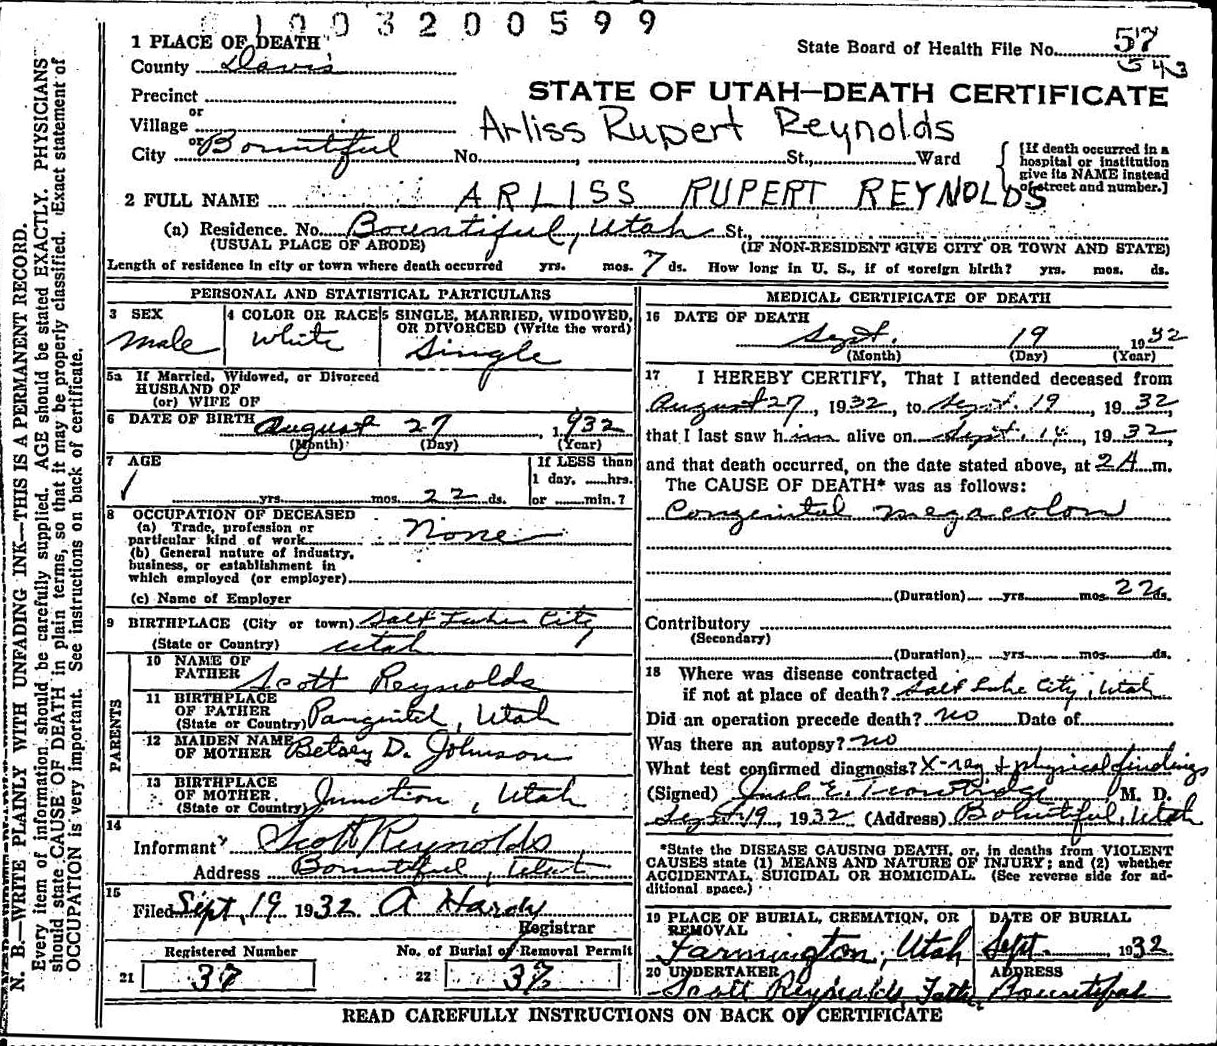 1003200599
1 PLACE OF DEATH
State Board of Health File No. 57
543
County Davis
STATE OF UTAH—DEATH CERTIFICATE
Precinct
or
Village
Arliss Rupert Reynolds
or
City Bountiful No. , St., Ward
[If death occurred in a hospital or institution give its NAME instead of street and number.]
2 FULL NAME ARLISS RUPERT REYNOLDS
(a) Residence. No. Bountiful, Utah St.,
(USUAL PLACE OF ABODE) (IF NON-RESIDENT GIVE CITY OR TOWN AND STATE)
Length of residence in city or town where death occurred yrs. mos. 7 ds. How long in U. S., if of foreign birth? yrs. mos. ds.
PERSONAL AND STATISTICAL PARTICULARS
3 SEX
male
4 COLOR OR RACE
White
5 SINGLE, MARRIED, WIDOWED,
OR DIVORCED (Write the word)
Single
5a If Married, Widowed, or Divorced
HUSBAND OF
(or) WIFE OF
6 DATE OF BIRTH August 27, 1932
(Month) (Day) (Year)
7 AGE
yrs. mos. 22 ds.
If LESS than
1 day, hrs.
or min.?
8 OCCUPATION OF DECEASED
(a) Trade, profession or
particular kind of work None
(b) General nature of industry,
business, or establishment in
which employed (or employer)
(c) Name of Employer
9 BIRTHPLACE (City or town) Salt Lake City
(State or Country) Utah
PARENTS
10 NAME OF
FATHER Scott Reynolds
11 BIRTHPLACE
OF FATHER
(State or Country) Panguitch, Utah
12 MAIDEN NAME
OF MOTHER Betsey D. Johnson
13 BIRTHPLACE
OF MOTHER
(State or Country) Junction, Utah
14
Informant Scott Reynolds
Address Bountiful, Utah
15
Filed Sept 19 1932 A Hardy
Registrar
Registered Number
21 37
No. of Burial or Removal Permit
22 37
MEDICAL CERTIFICATE OF DEATH
16 DATE OF DEATH
Sept. 19 1932
(Month) (Day) (Year)
17 I HEREBY CERTIFY, That I attended deceased from
August 27, 1932, to Sept. 19, 1932,
that I last saw him alive on Sept. 14, 1932,
and that death occurred, on the date stated above, at 2 A m.
The CAUSE OF DEATH* was as follows:
Congenital megacolon
(Duration) yrs. mos. 22 ds.
Contributory
(Secondary)
(Duration) yrs. mos. ds.
18 Where was disease contracted
if not at place of death? Salt Lake City, Utah
Did an operation precede death? no Date of
Was there an autopsy? no
What test confirmed diagnosis? X-ray + physical findings
(Signed) E. Trowbridge M. D.
Sept 19, 1932 (Address) Bountiful, Utah
*State the DISEASE CAUSING DEATH, or, in deaths from VIOLENT
CAUSES state (1) MEANS AND NATURE OF INJURY; and (2) whether
ACCIDENTAL, SUICIDAL OR HOMICIDAL. (See reverse side for ad-
ditional space.)
19 PLACE OF BURIAL, CREMATION, OR
REMOVAL
Farmington, Utah
DATE OF BURIAL
Sept. 1932
20 UNDERTAKER
Scott Reynolds, Father
ADDRESS
Bountiful
READ CAREFULLY INSTRUCTIONS ON BACK OF CERTIFICATE
N. B.—WRITE PLAINLY WITH UNFADING INK—THIS IS A PERMANENT RECORD.
Every item of information should be carefully supplied. AGE should be stated EXACTLY. PHYSICIANS
should state CAUSE OF DEATH in plain terms, so that it may be properly classified. Exact statement of
OCCUPATION is very important. See instructions on back of certificate.